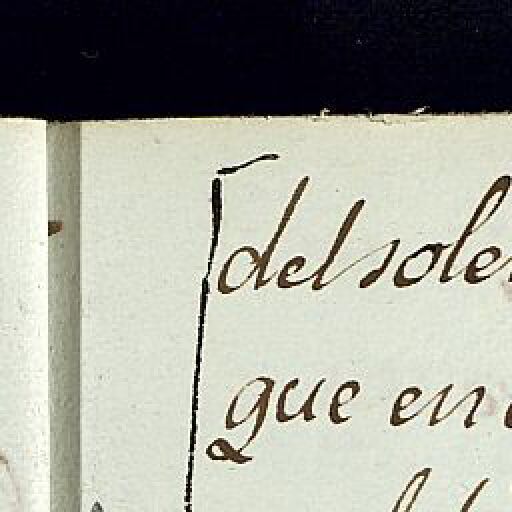 del sole
que en